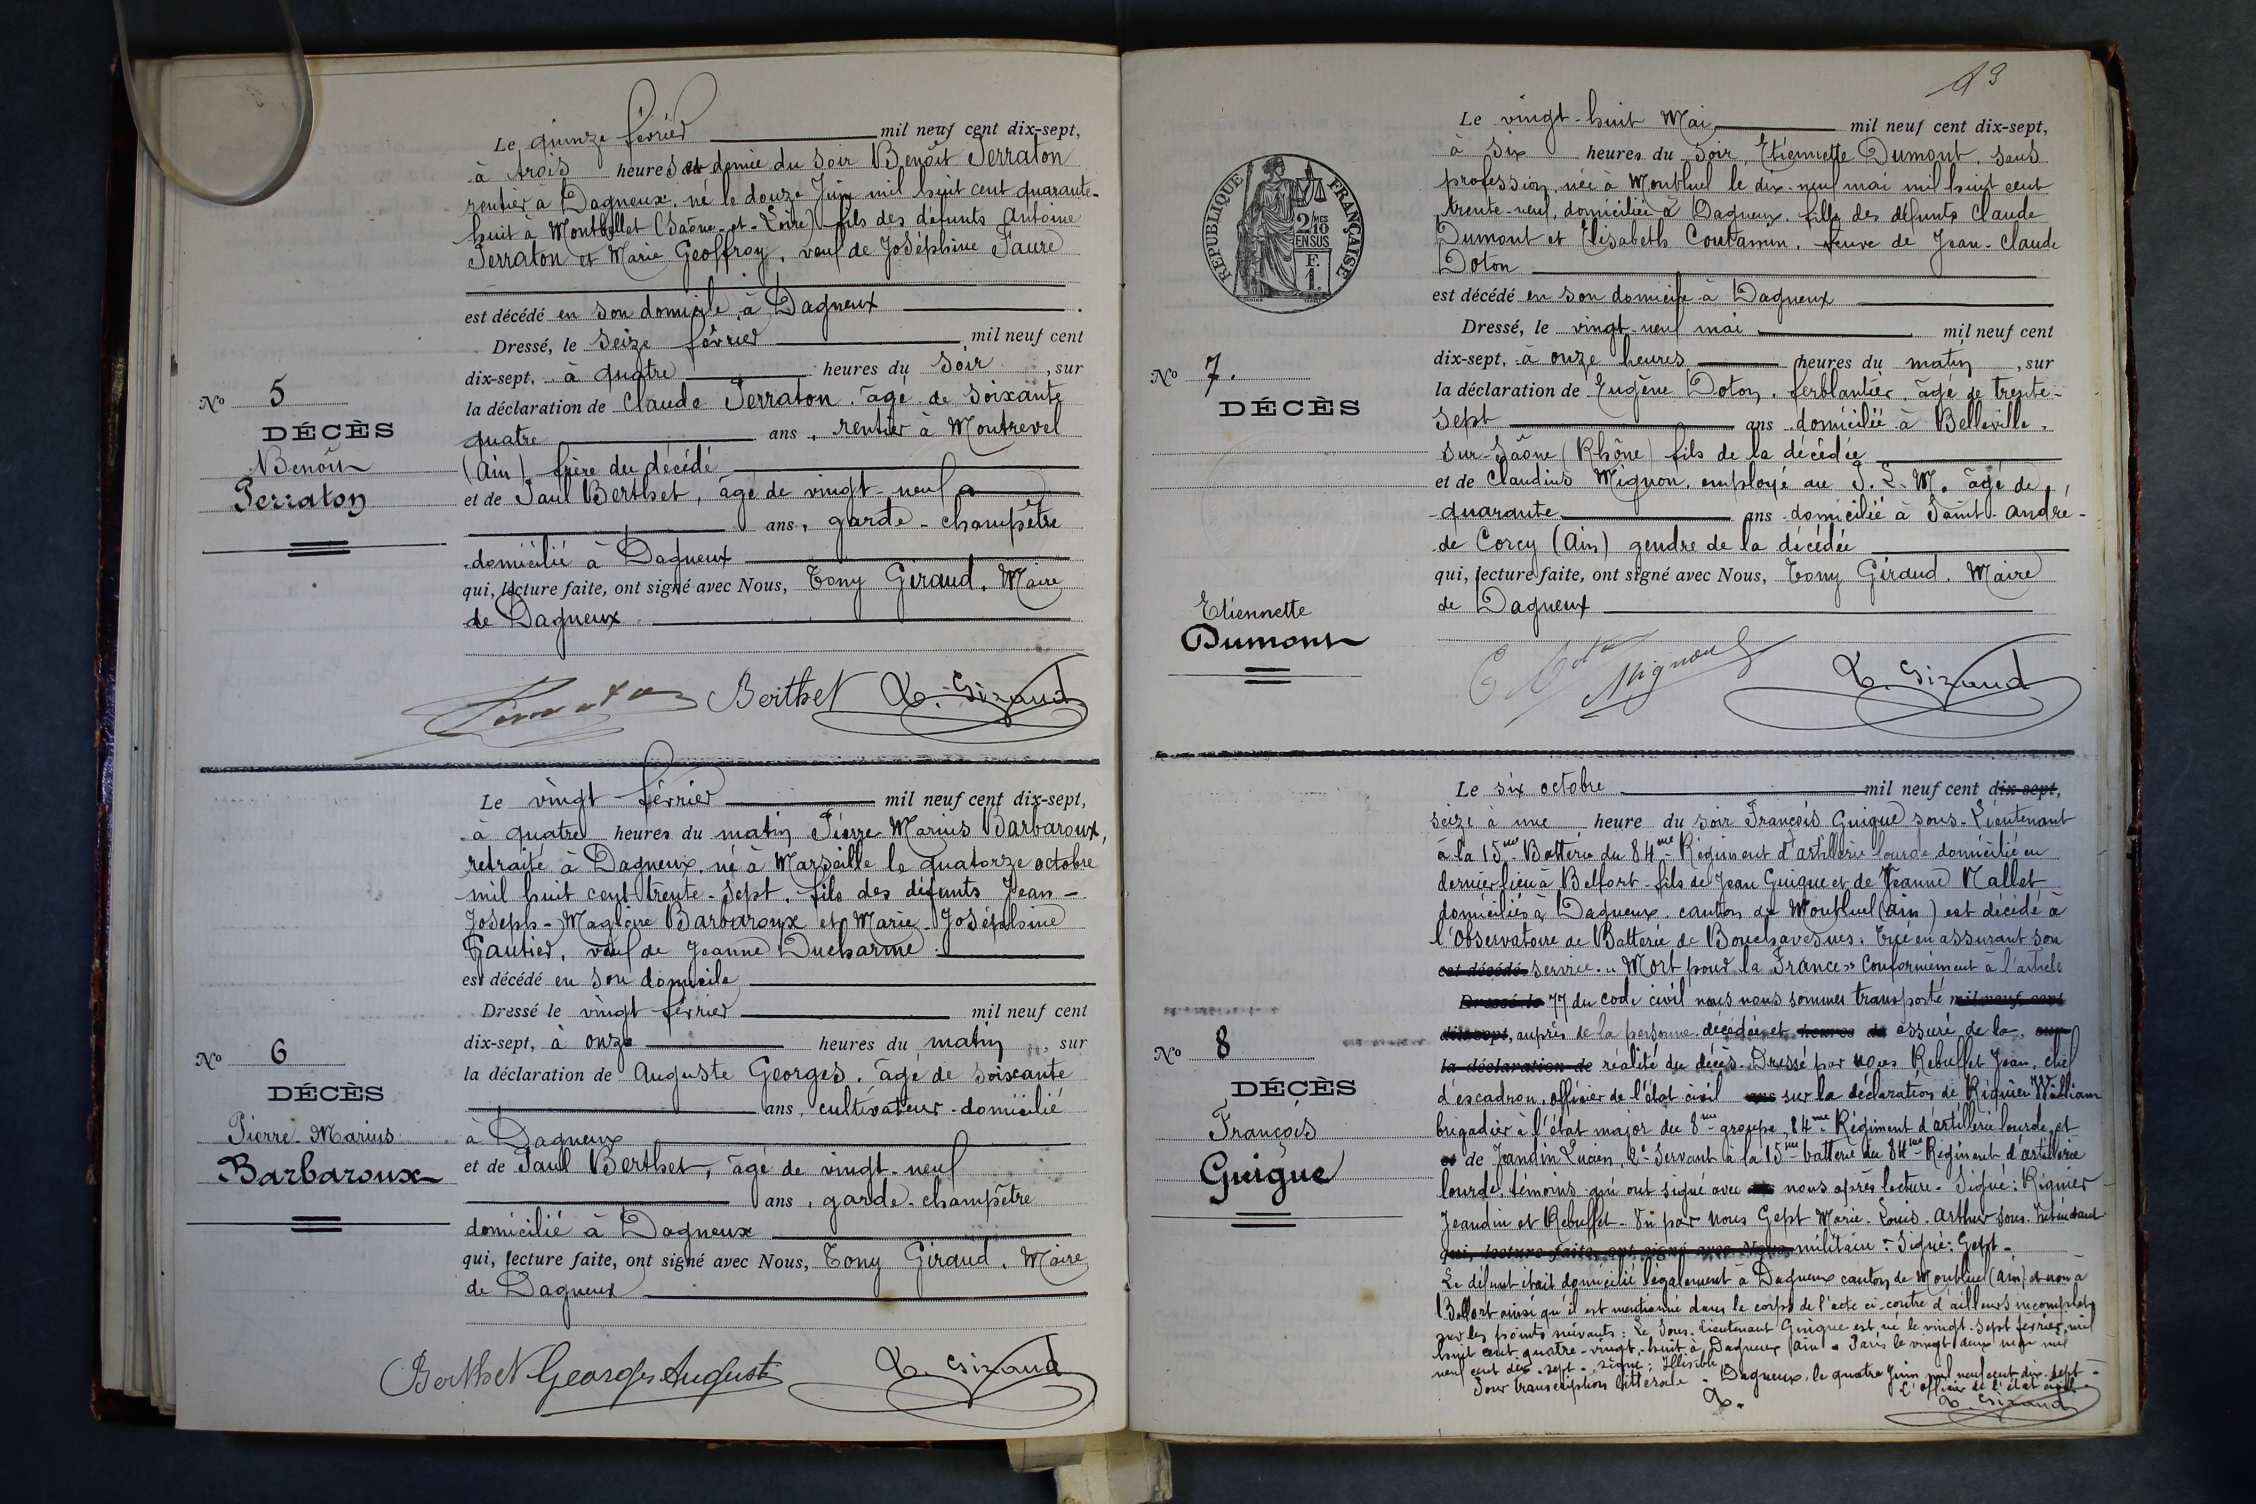 Le quinze février mil neuf cent dix-sept,
à trois heures et demie du soir Benoît Perraton
rentier à Dagneux, né le douze Juin mil huit cent quarante-
huit à Montbellet (Saône-et-Loire) fils des défunts Antoine
Perraton et Marie Geoffroy, veuf de Joséphine Faure
est décédé en son domicile à Dagneux
Dressé, le seize février mil neuf cent
dix-sept, à quatre heures du soir, sur
la déclaration de Claude Perraton, âgé de soixante
quatre ans, rentier à Montrevel
(Ain) frère du décédé
et de Paul Berthet, âgé de vingt-neuf
ans, garde-champêtre
domicilié à Dagneux
qui, lecture faite, ont signé avec Nous, Tony Giraud, Maire
de Dagneux
No 5
DÉCÈS
Benoît
Perraton
Perraton Berthet T. Giraud
Le vingt février mil neuf cent dix-sept,
à quatre heures du matin Pierre-Marius Barbaroux,
retraité à Dagneux, né à Marseille le quatorze octobre
mil huit cent trente-sept, fils des défunts Jean-
Joseph-Magloire Barbaroux et Marie-Joséphine
Gautier, veuf de Jeanne Ducharme
est décédé en son domicile
Dressé le vingt février mil neuf cent
dix-sept, à onze heures du matin, sur
la déclaration de Auguste Georges, âgé de soixante
ans, cultivateur domicilié
à Dagneux
et de Paul Berthet, âgé de vingt-neuf
ans, garde-champêtre
domicilié à Dagneux
qui, lecture faite, ont signé avec Nous, Tony Giraud, Maire
de Dagneux
No 6
DÉCÈS
Pierre-Marius
Barbaroux
Berthet Georges Auguste T. Giraud
13
RÉPUBLIQUE FRANÇAISE
2/10 MES
EN SUS
F.
1.
Le vingt-huit Mai mil neuf cent dix-sept,
à six heures du soir, Etiennette Dumont, sans
profession, née à Montluel le dix-neuf mai mil huit cent
trente-neuf, domiciliée à Dagneux, fille des défunts Claude
Dumont et Elisabeth Coutamin, veuve de Jean-Claude
Doton
est décédé en son domicile à Dagneux
Dressé, le vingt-neuf mai mil neuf cent
dix-sept, à onze heures heures du matin, sur
la déclaration de Eugène Doton, ferblantier, âgé de trente-
sept ans domicilié à Belleville-
sur-Saône (Rhône) fils de la décédée
et de Claudius Mignon, employé au P. L. M. âgé de
quarante ans domicilié à Saint-André-
de Corcy (Ain) gendre de la décédée
qui, lecture faite, ont signé avec Nous, Tony Giraud, Maire
de Dagneux
No 7.
DÉCÈS
Etiennette
Dumont
Mignon T. Giraud
Le six octobre mil neuf cent dix-sept,
seize à une heure du soir François Guigue sous-Lieutenant
à la 15me Batterie du 84me Régiment d'artillerie lourde domicilié en
dernier lieu à Belfort fils de Jean Guigue et de Jeanne Mallet
domiciliés à Dagneux canton de Montluel (Ain) est décédé à
l'Observatoire de Batterie de Bouchavesnes. Tué en assurant son
est décédé service. "Mort pour la France" Conformément à l'article
Dressé le 77 du code civil nous nous sommes transporté mil neuf cent
dix-sept, auprès de la personne décédée et heures du assuré de la, sur
la déclaration de réalité du décès. Dressé par nous Rebuffet Jean, chef
d'escadron, officier de l'état civil ans sur la déclaration de Régnier William
brigadier à l'état major du 8me groupe, 84me Régiment d'artillerie lourde, et
et de Jeandin Lucien, 2e Servant à la 15me batterie du 84me Régiment d'artillerie
lourde témoins qui ont signé avec nous après lecture. Signé: Régnier
Jeandin et Rebuffet. Vu par nous Gept Marie-Louis-Arthur sous-Intendant
qui, lecture faite, ont signé avec Nous, militaire. Signé: Gept.
Le défunt était domicilié légalement à Dagneux canton de Montluel (Ain) et non à
Belfort ainsi qu'il est mentionné dans le corps de l'acte ci-contre d'ailleurs incomplet
sur les points suivants: Le Sous-Lieutenant Guigue est né le vingt-sept février mil
huit cent quatre-vingt-huit à Dagneux Ain. Paris le vingt deux mai mil
neuf cent dix-sept. signé: Illisible
Pour transcription littérale. Dagneux, le quatre Juin mil neuf cent dix-sept
L'officier de l'état civil
T. T. Giraud
No 8
DÉCÈS
François
Guigue